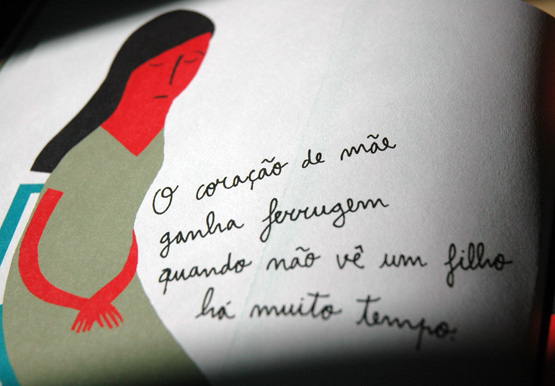 O coração de mãe
ganha ferrugem
quando não vê um filho
há muito tempo.